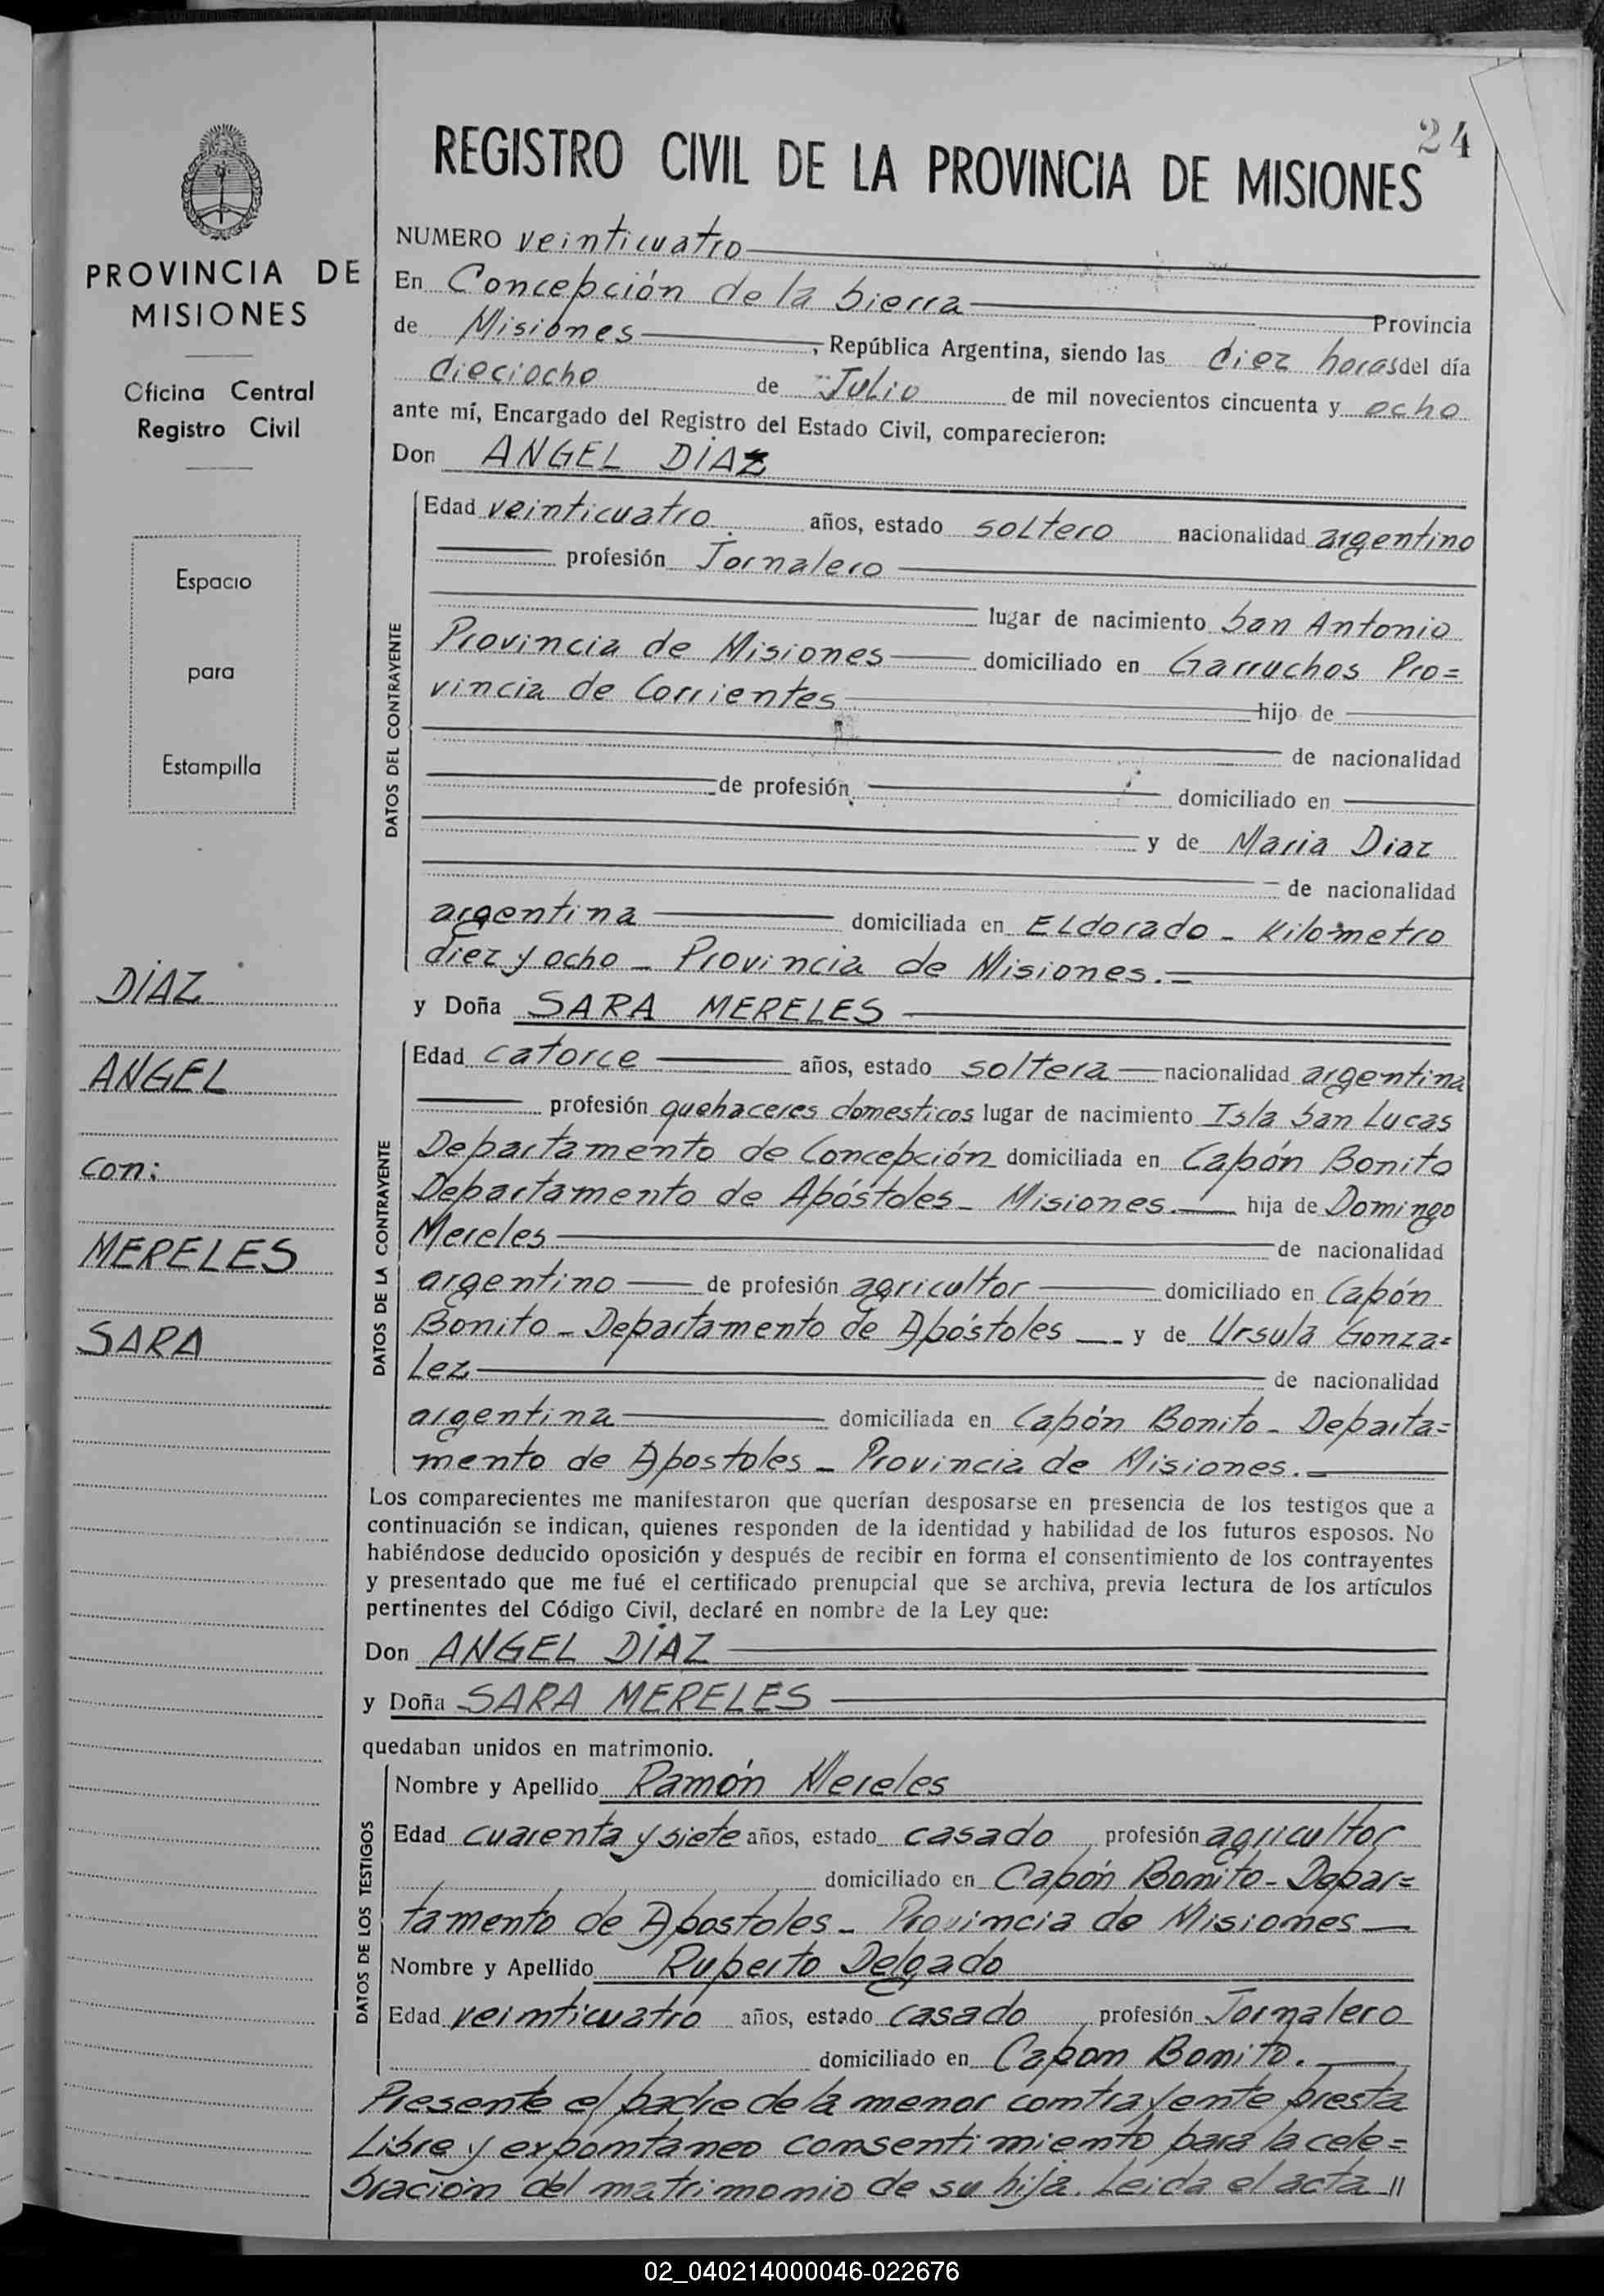 24
REGISTRO CIVIL DE LA PROVINCIA DE MISIONES
PROVINCIA DE
MISIONES
Oficina Central
Registro Civil
Espacio
para
Estampilla
DÍAZ
ANGEL
con:
MERELES
SARA
NUMERO veinticuatro
En Concepción de la Sierra Provincia
de Misiones, República Argentina, siendo las diez horas del día
dieciocho de Julio de mil novecientos cincuenta y ocho
ante mí, Encargado del Registro del Estado Civil, comparecieron:
Don ANGEL DÍAZ
DATOS DEL CONTRAYENTE
Edad veinticuatro años, estado soltero nacionalidad argentino
profesión Jornalero
lugar de nacimiento San Antonio
Provincia de Misiones domiciliado en Garruchos Pro=
vincia de Corrientes hijo de
de nacionalidad
de profesión domiciliado en
y de Maria Diaz
de nacionalidad
argentina domiciliada en ELdorado - Kilómetro
diez y ocho - Provincia de Misiones.-
y Doña SARA MERELES
DATOS DE LA CONTRAYENTE
Edad catorce años, estado soltera nacionalidad argentina
profesión quehaceres domesticos lugar de nacimiento Isla San Lucas
Departamento de Concepción domiciliada en Capón Bonito
Departamento de Apóstoles - Misiones.- hija de Domingo
Mereles de nacionalidad
argentino de profesión agricultor domiciliado en Capón
Bonito - Departamento de Apóstoles - y de Ursula Gonza=
Lez de nacionalidad
argentina domiciliada en Capón Bonito - Departa=
mento de Apostoles - Provincia de Misiones.-
Los comparecientes me manifestaron que querían desposarse en presencia de los testigos que a
continuación se indican, quienes responden de la identidad y habilidad de los futuros esposos. No
habiéndose deducido oposición y después de recibir en forma el consentimiento de los contrayentes
y presentado que me fué el certificado prenupcial que se archiva, previa lectura de los artículos
pertinentes del Código Civil, declaré en nombre de la Ley que:
Don ANGEL DÍAZ
y Doña SARA MERELES
quedaban unidos en matrimonio.
DATOS DE LOS TESTIGOS
Nombre y Apellido Ramón Mereles
Edad cuarenta y siete años, estado casado profesión agricultor
domiciliado en Capón Bonito - Depar=
tamento de Apostoles - Provincia de Misiones
Nombre y Apellido Ruperto Delgado
Edad veinticuatro años, estado casado profesión Jornalero
domiciliado en Capon Bonito.
Presente el padre de la menor contrayente presta
Libre y expontaneo consentimiento para la cele=
bración del matrimonio de su hija. Leida el acta 11
02_040214000046-022676